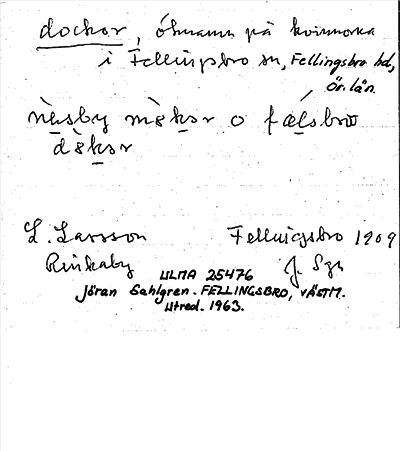 dockor, öknamn på kvinnorna
i Fellingsbro sn, Fellingsbro hd,
Ör. län.
näsby mòkor o fælsbro
dòkor
L. Larsson Fellingsbro 1909
Rinkaby J. Sgn
ULMA 25476
Jöran Sahlgren. FELLINGSBRO, VÄSTM.
Utred. 1963.